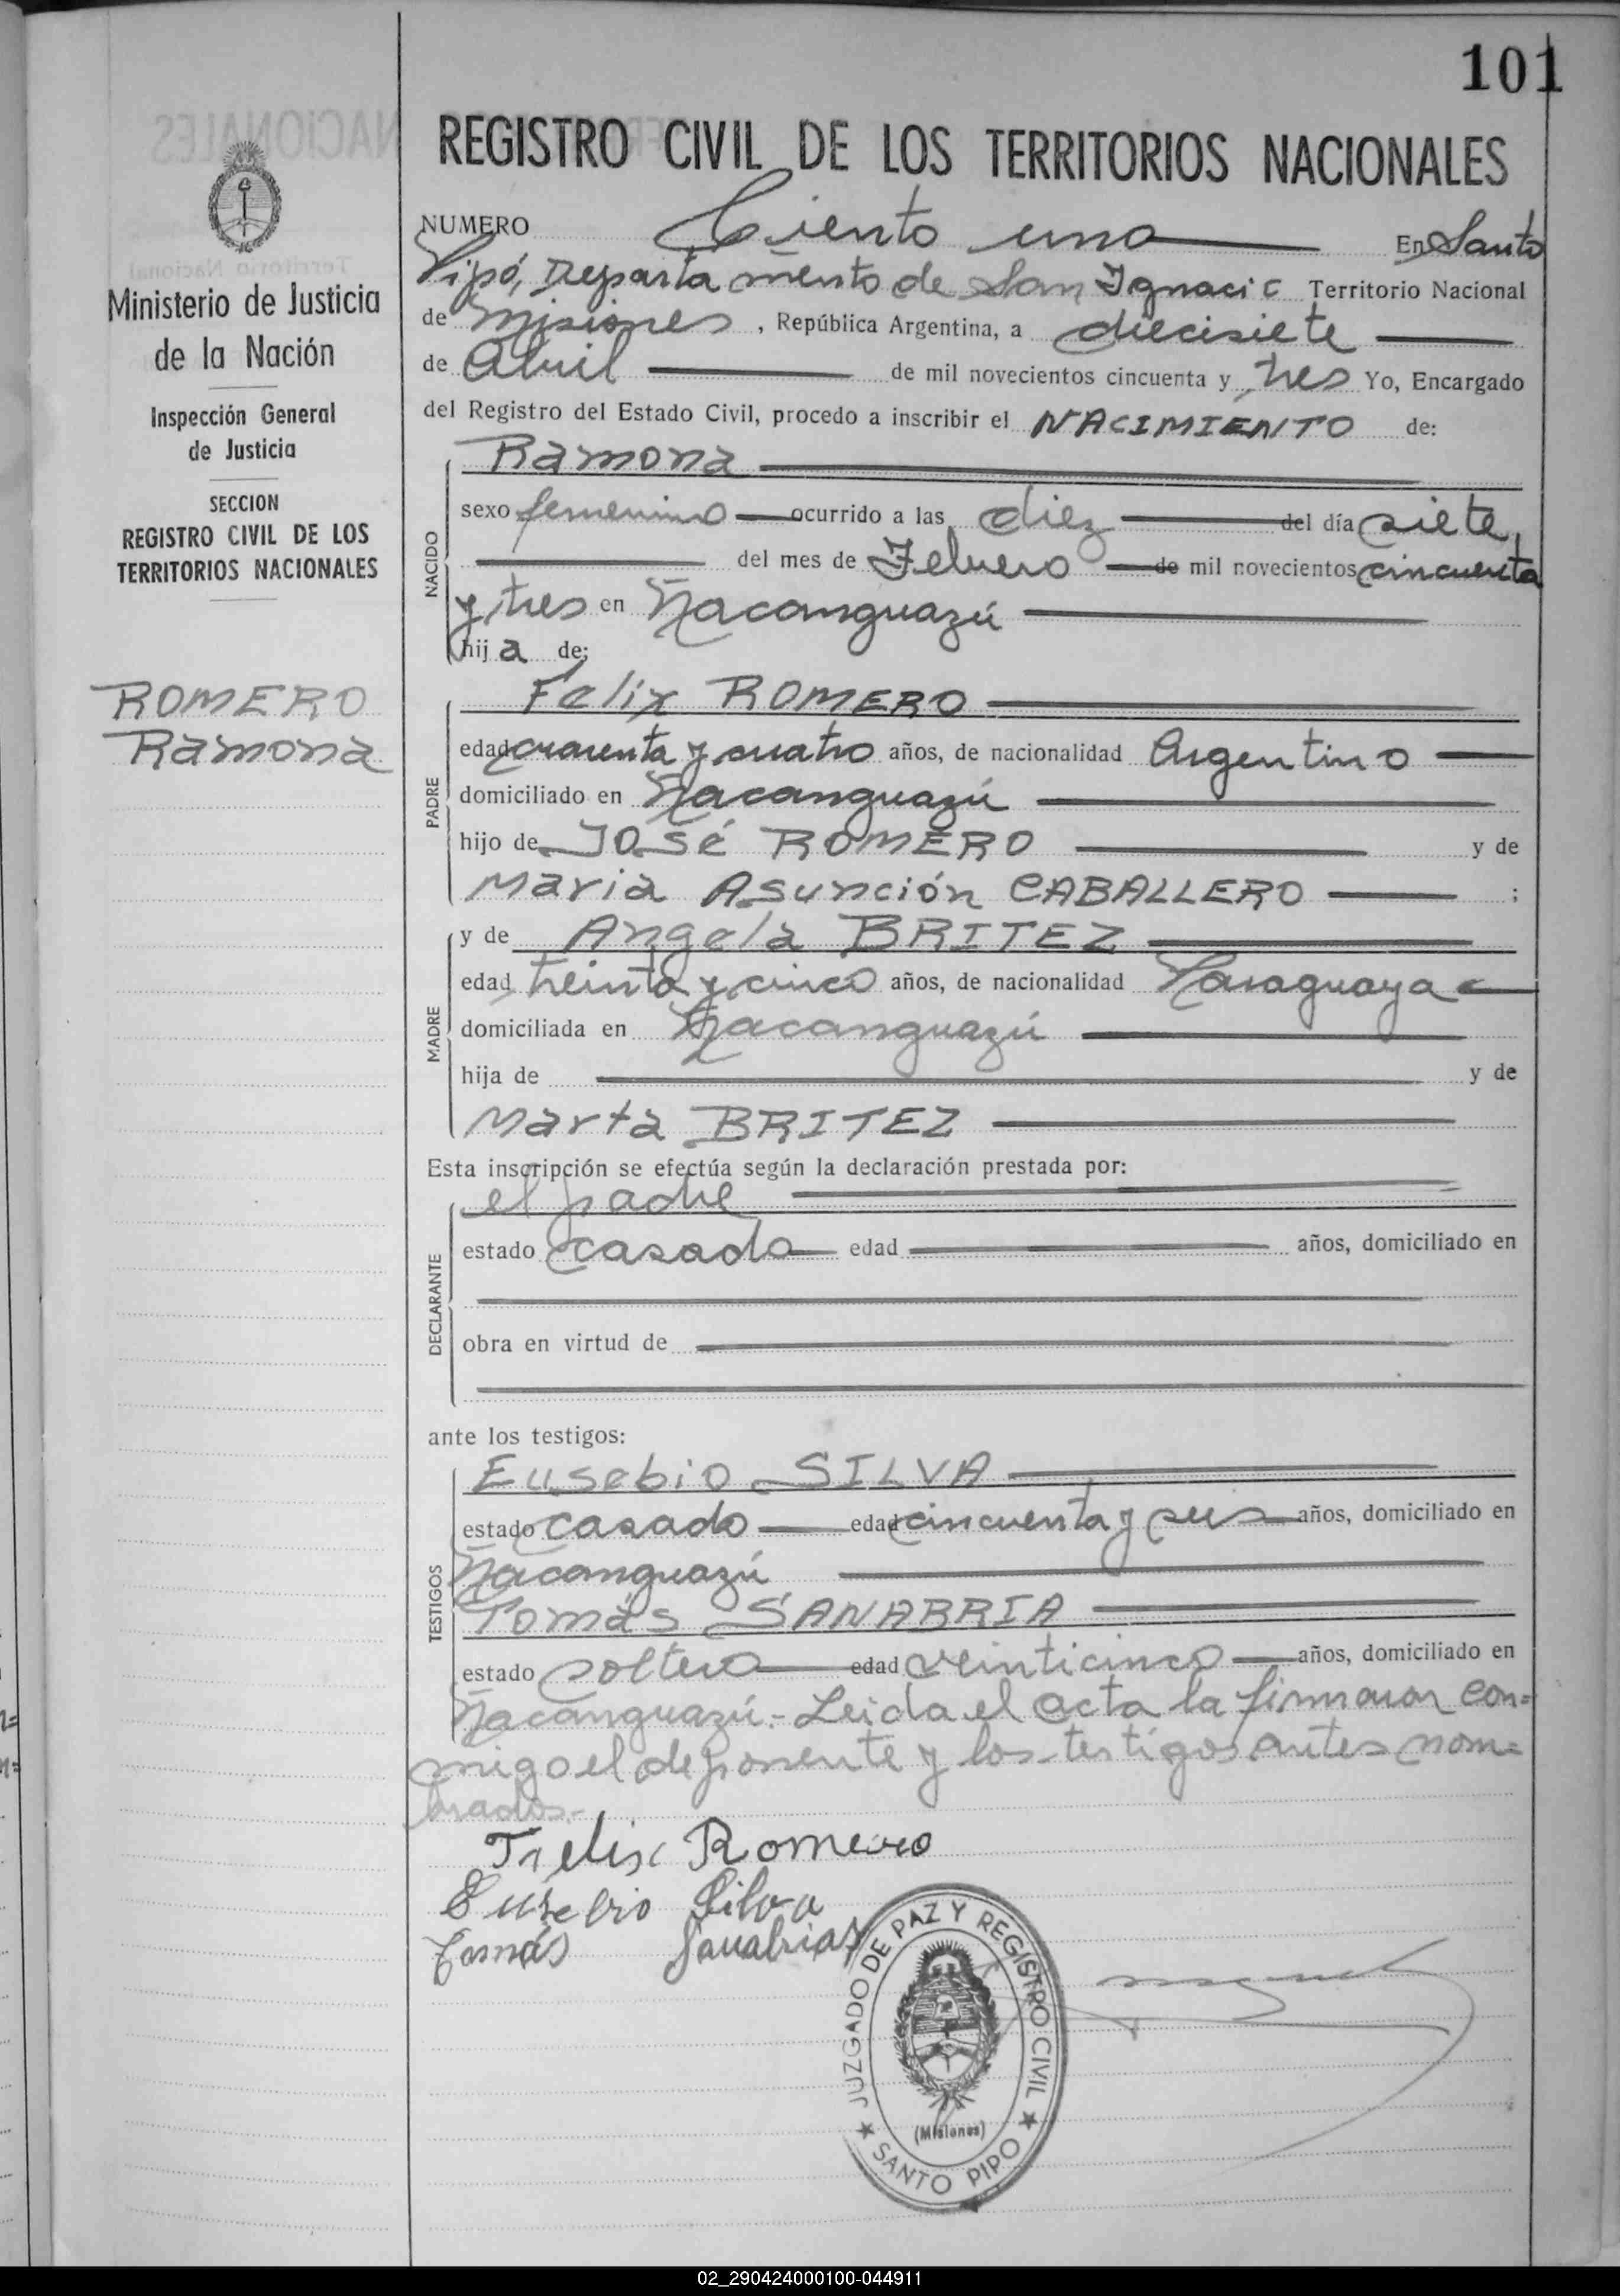 101
REGISTRO CIVIL DE LOS TERRITORIOS NACIONALES
Ministerio de Justicia
de la Nación
Inspección General
de Justicia
SECCION
REGISTRO CIVIL DE LOS
TERRITORIOS NACIONALES
ROMERO
Ramona
NUMERO Ciento uno En Santo
Pipó, Departamento de San Ignacio Territorio Nacional
de Misiones, República Argentina, a diecisiete
de Abril de mil novecientos cincuenta y tres Yo, Encargado
del Registro del Estado Civil, procedo a inscribir el NACIMIENTO de:
NACIDO
Ramona
sexo femenino ocurrido a las diez del día siete
del mes de Febrero de mil novecientos cincuenta
y tres en Ñacanguazú
hija de:
PADRE
Felix ROMERO
edad cuarenta y cuatro años, de nacionalidad Argentino
domiciliado en Ñacanguazú
hijo de José ROMERO y de
Maria Asunción CABALLERO ;
MADRE
y de Angela BRITEZ
edad treinta y cinco años, de nacionalidad Paraguaya
domiciliada en Ñacanguazú
hija de y de
Marta BRITEZ
Esta inscripción se efectúa según la declaración prestada por:
DECLARANTE
el padre
estado casado edad años, domiciliado en
obra en virtud de
ante los testigos:
TESTIGOS
Eusebio SILVA
estado casado edad cincuenta y seis años, domiciliado en
Ñacanguazú
Tomás SANABRIA
estado soltero edad veinticinco años, domiciliado en
Ñacanguazú.- Leida el acta la firmaron con=
migo el deponente y los testigos antes nom=
brados.-
Felix Romero
Eusebio Silva
Tomás Sanabrias
JUZGADO DE PAZ Y REGISTRO CIVIL
(Misiones)
★ SANTO PIPO ★
02_290424000100-044911